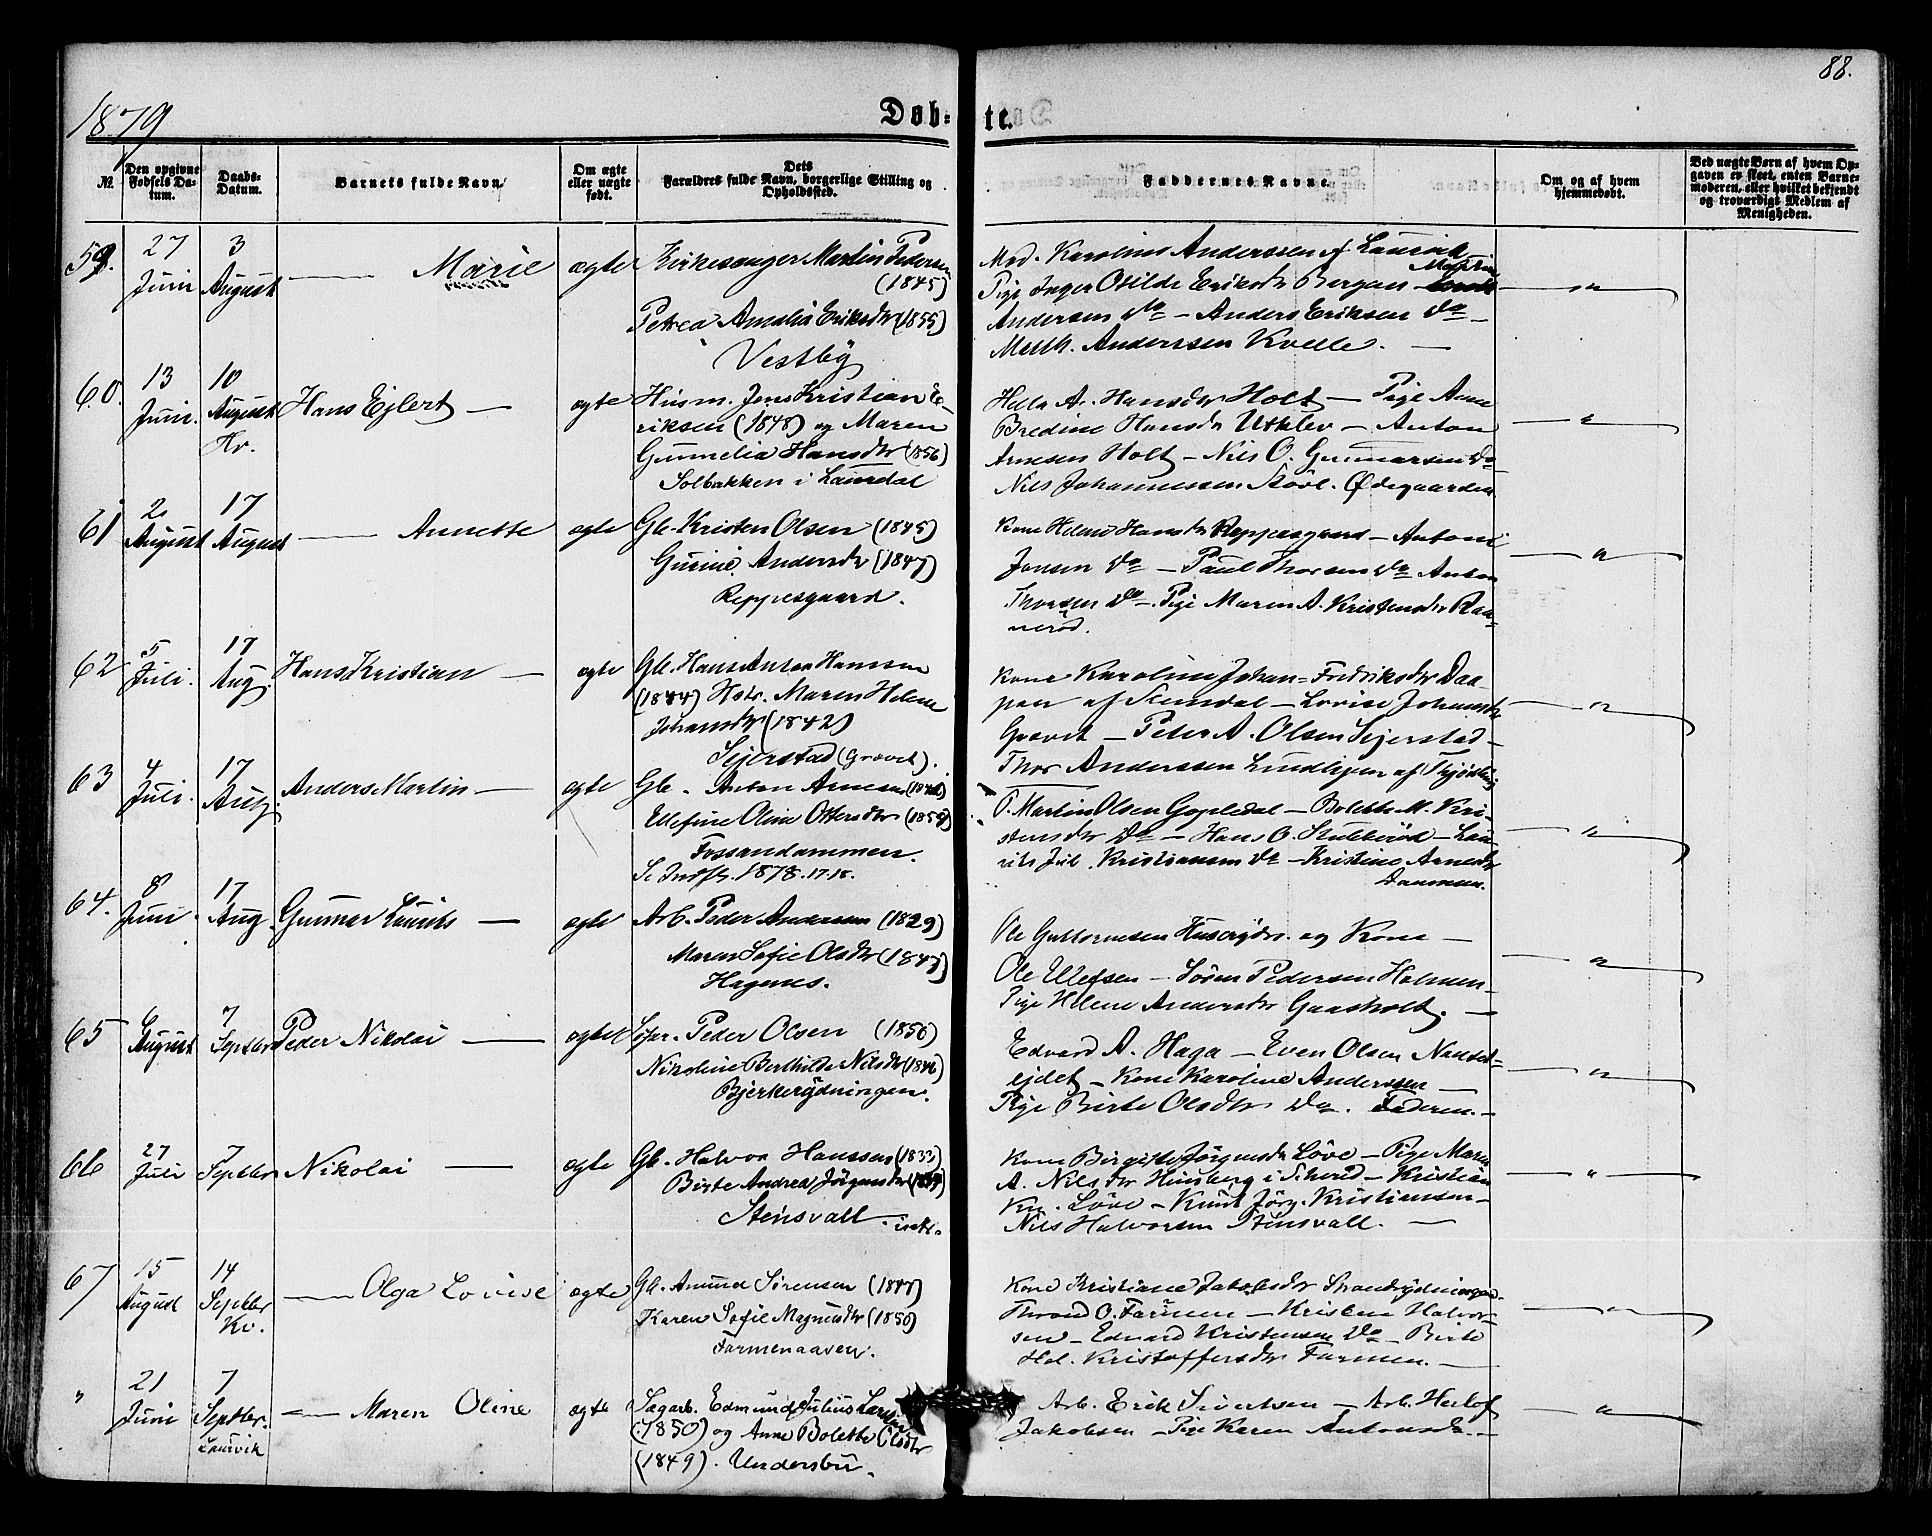 88.
1879
Døb-te.
No.
Den opgivne Fødsels Datum.
Daabs-Datum.
Barnets fulde Navn.
Om ægte eller uægte født.
Dets Forældres fulde Navn, borgerlige Stilling og Opholdssted.
Faddernes Navne.
Om og af hvem hjemmedøbt.
Ved uægte Børn af hvem Opgaven er skeet, enten Barnemoderen, eller hvilket bekjendt og troværdigt Medlem af Menigheden.
59. 27 Juni 3 August — Marie ægte
Kirkesanger Martin Pedersen
(1845)
Petrea Amalia Eriksdr (1855)
Vestby
Mad. Karoline Anderssen af Laurvik
Pige Inger Otilde Eriksdr Bergan —
Andersen do — Anders Eriksen do —
Math. Anderssen Kvelle. —
60. 13 Juni. 10 August Hv. Hans Ejlert — ægte
Husm. Jens Kristian E-
riksen (1848) og Maren
Gunnelia Hansdr (1856)
Solbakken i Laurdal
Helle A. Hansdr Holt — Pige Anne
Bredine Hansdr Utklev — Anton
Arnesen Holt — Nils O. Gunnarsen do
Nils Johannessen Ødegaarden
61 2 August 17 August — Annette ægte
Gb. Kristen Olsen (1845)
Gurine Andersdr (1847)
Reppesgaard.
Kone Helene Hansdr Reppesgaard — Antoni
Jonsen do — Paul Thorsen do Anton
Thorsen do — Pige Maren A. Kristensdr Ran-
nerød.
62 5 Juli. 17 Aug. Hans Kristian — ægte
Gb. Hans Anton Hanssen
(1844) Hstr. Maren Helene
Johansdr (1842)
Sejerstad (Gravet).
Kone Karoline Johan-Fredriksdr Daa-
pan af Slemdal — Lovise Johansdr
Gravet — Peter A. Olsen Sejerstad —
Thor Anderssen Lindhjem af Thjødling
63 4 Juli. 17 Aug. Anders Martin — ægte
Gb. Anton Arnesen
Ellefine Oline Ottersdr
Fossandammen.
1878. 17. 18.
P. Martin Olsen Gopledal — Bolette M. Kri-
stensdr do — Hans O. Stubberød — Lau-
rits Jul. Kristiansen do — Kristine Arnesdr
Dammen.
64. 8 Juni. 17 Aug. Gunnar Laurits — ægte
Arb. Peder Andersen (1829)
Maren Sofie Olsdr (1847)
Hagenes.
Ole Guttormsen og Kone —
Ole Ellefsen — Søren Pedersen Holmen —
Pige Helene Andersdr Gaasholt. —
65 6 August 7 Septbr Peder Nikolai — ægte
Peder Olsen (1856)
Nikoline Berthilde Nilsdr (1846)
Bjerkerydningen.
Edvard A. Haga — Even Olsen
ejdet — Kone Karoline Anderssen —
Pige Birte Olsdr do. Faderen. —
66 27 Juli 7 Septbr Nikolai — ægte
Gb. Halvor Hanssen (1833)
Birte Andrea Jørgensdr
Stensvall
Kone Birgitte Jørgensdr Løve — Pige Maren
A. Nilsdr — Kristian
Løve — Knut Jørg. Kristiansen —
Nils Halvorsen Stensvall. —
67 15 August 14 Septbr Kv. — Olga Lovise ægte
Gb. Amund Sørensen
Karen Sofie Magnusdr (1850)
Farmenaasen.
Kone Kristiane Jakobsdr Strandrydningen.
Thrond O. Farmen — Kristine Halvor-
sen — Edvard Kristensen do — Birte
Hel. Kristoffersdr Farmen. —
" 21 Juni 7 Septbr. Laurvik — Maren Oline ægte
Sagarb. Edmund Julius
(1850) og Anne Bolette Olsdr
(1849). Undersbu.
Arb. Erik Sivertsen — Arb. Herlof
Jakobsen — Pige Karen Antonsdr. —